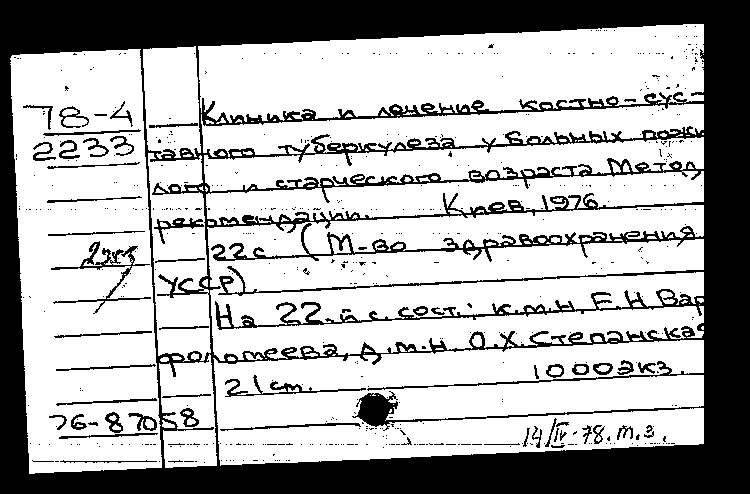 78-4 Клиника и лечение костно-сус-
2233 тавного туберкулеза у больных пожи
лого и старческого возраста. Метод.
рекомендации. Киев, 1976.
2экз 22с (М-во здравоохранения
УССР).
На 22-й с. сост.: к.м.н. Е.Н. Вар
фоломеева, д.м.н. О.Х. Степанская
21см. 1000экз.
76-87058
14/IV-78. т.з.